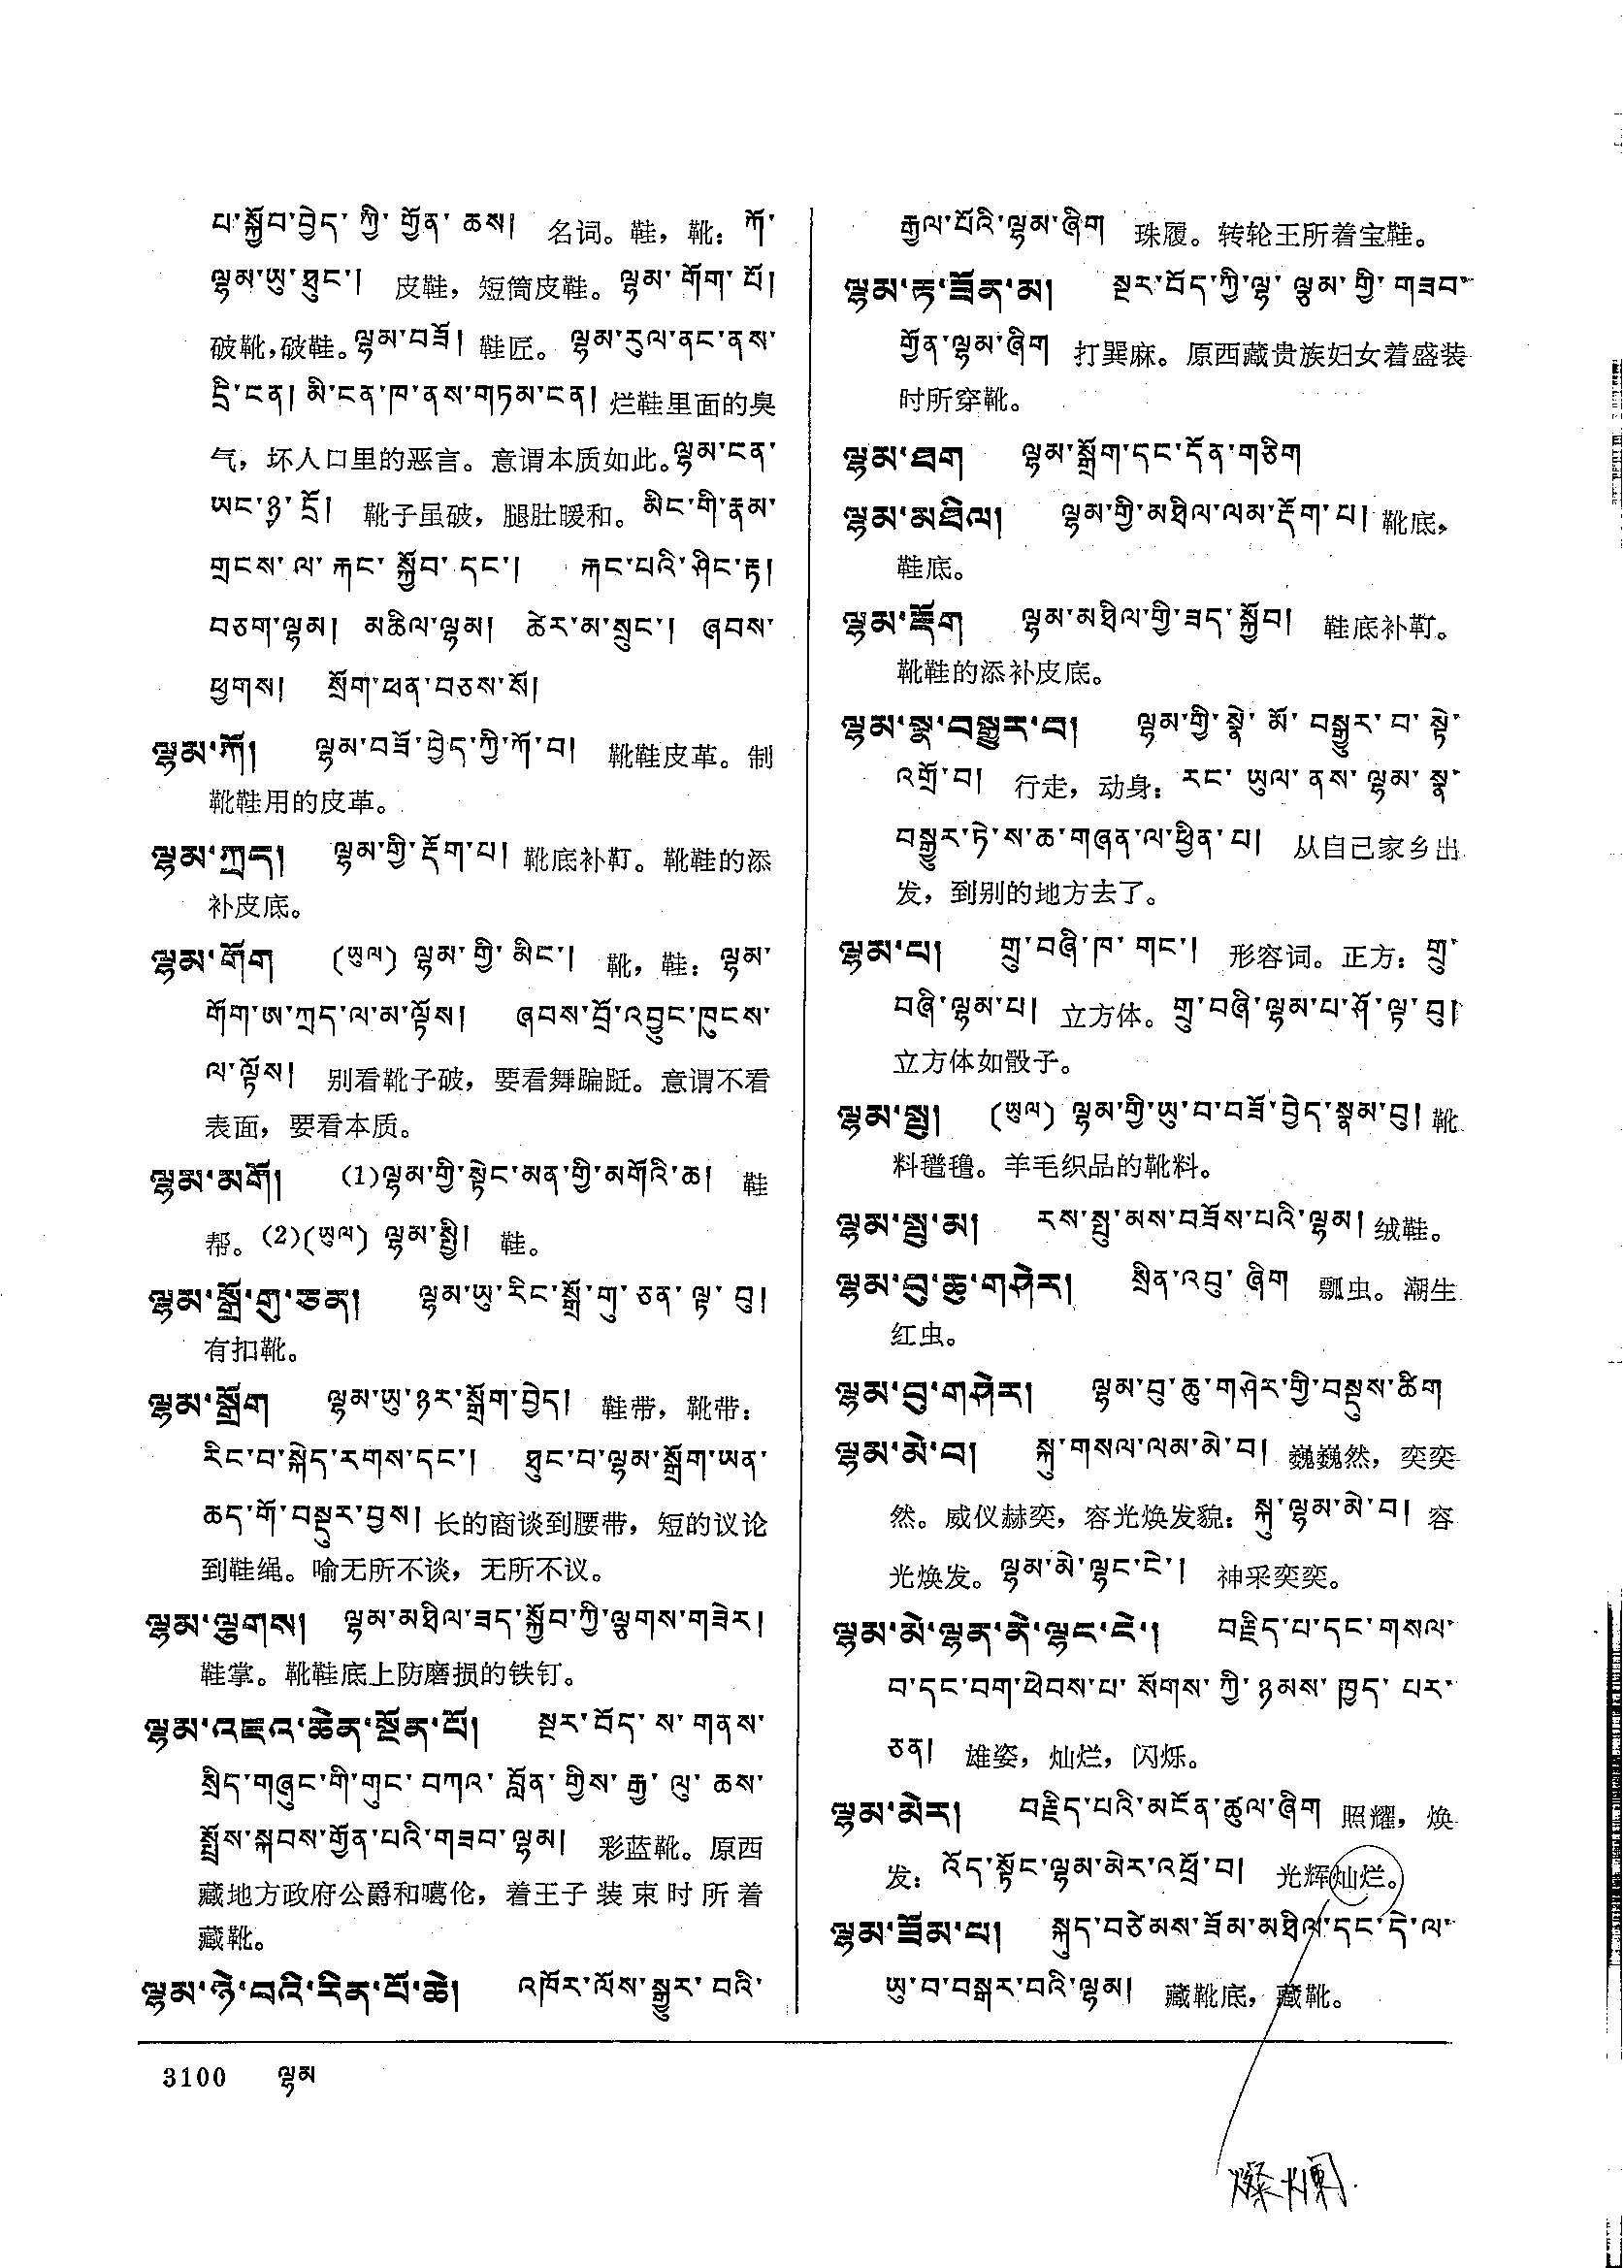 པ་སྐྱོབ་བྱེད་ཀྱི་གྱོན་ཆས། 名词。鞋，靴：ཀོ་
ལྷམ་ཡུ་ཐུང་། 皮鞋，短筒皮鞋。ལྷམ་གོག་པོ།
破靴,破鞋。ལྷམ་བཟོ། 鞋匠。ལྷམ་རུལ་ནང་ནས་
དྲི་ངན། མི་ངན་ཁ་ནས་གཏམ་ངན། 烂鞋里面的臭
气，坏人口里的恶言。意谓本质如此。ལྷམ་ངན་
ཡང་ཉྭ་དྲོ། 靴子虽破，腿肚暖和。མིང་གི་རྣམ་
གྲངས་ལ་རྐང་སྐྱོབ་དང་། རྐང་པའི་ཤིང་རྟ།
བཅག་ལྷམ། མཆིལ་ལྷམ། ཚེར་མ་སྲུང་། ཞབས་
ཕྱགས། སྲོག་ཕན་བཅས་སོ།
ལྷམ་ཀོ། ལྷམ་བཟོ་བྱེད་ཀྱི་ཀོ་བ། 靴鞋皮革。制
靴鞋用的皮革。
ལྷམ་ཀྲད། ལྷམ་གྱི་རྡོག་པ། 靴底补靪。靴鞋的添
补皮底。
ལྷམ་གོག (ཡུལ) ལྷམ་གྱི་མིང་། 靴，鞋：ལྷམ་
གོག་ཨ་ཀྲད་ལ་མ་ལྟོས། ཞབས་བྲོ་འབྱུང་ཁུངས་
ལ་ལྟོས། 别看靴子破，要看舞蹁跹。意谓不看
表面，要看本质。
ལྷམ་མགོ། (1)ལྷམ་གྱི་སྟེང་མན་གྱི་མགོའི་ཆ། 鞋
帮。(2)(ཡུལ) ལྷམ་སྤྱི། 鞋。
ལྷམ་སྒྲོ་གུ་ཅན། ལྷམ་ཡུ་རིང་སྒྲོ་གུ་ཅན་ལྟ་བུ།
有扣靴。
ལྷམ་སྒྲོག ལྷམ་ཡུ་ཉར་སྒྲོག་བྱེད། 鞋带，靴带：
རིང་བ་སྐེད་རགས་དང་། ཐུང་བ་ལྷམ་སྒྲོག་ཡན་
ཆད་གོ་བསྡུར་བྱས། 长的商谈到腰带，短的议论
到鞋绳。喻无所不谈，无所不议。
ལྷམ་ལྕགས། ལྷམ་མཐིལ་ཟད་སྐྱོབ་ཀྱི་ལྕགས་གཟེར།
鞋掌。靴鞋底上防磨损的铁钉。
ལྷམ་འཇའ་ཆེན་སྔོན་པོ། སྔར་བོད་ས་གནས་
སྲིད་གཞུང་གི་གུང་བཀའ་བློན་གྱིས་རྒྱ་ལུ་ཆས་
སྤྲོས་སྐབས་གྱོན་པའི་གཟབ་ལྷམ། 彩蓝靴。原西
藏地方政府公爵和噶伦，着王子装束时所着
藏靴。
ལྷམ་ཉེ་བའི་རིན་པོ་ཆེ། འཁོར་ལོས་སྒྱུར་བའི་
རྒྱལ་པོའི་ལྷམ་ཞིག 珠履。转轮王所着宝鞋。
ལྷམ་རྟ་ཟོན་མ། སྔར་བོད་ཀྱི་ལྷ་ལྕམ་གྱི་གཟབ་
གྱོན་ལྷམ་ཞིག 打巽麻。原西藏贵族妇女着盛装
时所穿靴。
ལྷམ་ཐག ལྷམ་སྒྲོག་དང་དོན་གཅིག
ལྷམ་མཐིལ། ལྷམ་གྱི་མཐིལ་ལམ་རྡོག་པ། 靴底，
鞋底。
ལྷམ་རྡོག ལྷམ་མཐིལ་གྱི་ཟད་སྐྱོབ། 鞋底补靪。
靴鞋的添补皮底。
ལྷམ་སྣ་བསྒྱུར་བ། ལྷམ་གྱི་སྣེ་མོ་བསྒྱུར་བ་སྟེ་
འགྲོ་བ། 行走，动身：རང་ཡུལ་ནས་ལྷམ་སྣ་
བསྒྱུར་ཏེ་ས་ཆ་གཞན་ལ་ཕྱིན་པ། 从自己家乡出
发，到别的地方去了。
ལྷམ་པ། གྲུ་བཞི་ཁ་གང་། 形容词。正方：གྲུ་
བཞི་ལྷམ་པ། 立方体。གྲུ་བཞི་ལྷམ་པ་ཤོ་ལྟ་བུ།
立方体如骰子。
ལྷམ་སྤྲུ། (ཡུལ) ལྷམ་གྱི་ཡུ་བ་བཟོ་བྱེད་སྣམ་བུ། 靴
料氆氇。羊毛织品的靴料。
ལྷམ་སྤྲུ་མ། རས་སྤྲུ་མས་བཟོས་པའི་ལྷམ། 绒鞋。
ལྷམ་བུ་ཆུ་གཤེར། སྲིན་འབུ་ཞིག 瓢虫。潮生
红虫。
ལྷམ་བུ་གཤེར། ལྷམ་བུ་ཆུ་གཤེར་གྱི་བསྡུས་ཚིག
ལྷམ་མེ་བ། སྐུ་གསལ་ལམ་མེ་བ། 巍巍然，奕奕
然。威仪赫奕，容光焕发貌：སྐུ་ལྷམ་མེ་བ། 容
光焕发。ལྷམ་མེ་ལྷང་ངེ་། 神采奕奕。
ལྷམ་མེ་ལྷན་ནེ་ལྷང་ངེ་། བརྗིད་པ་དང་གསལ་
བ་དང་བག་ཕེབས་པ་སོགས་ཀྱི་ཉམས་ཁྱད་པར་
ཅན། 雄姿，灿烂，闪烁。
ལྷམ་མེར། བརྗིད་པའི་མངོན་ཚུལ་ཞིག 照耀，焕
发：འོད་སྟོང་ལྷམ་མེར་འཕྲོ་བ། 光辉灿烂。
ལྷམ་ཟོམ་པ། སྐུད་བཙེམས་ཟོམ་མཐིལ་དང་དེ་ལ་
ཡུ་བ་བསྒར་བའི་ལྷམ། 藏靴底，藏靴。
3100 ལྷམ
燦爛.